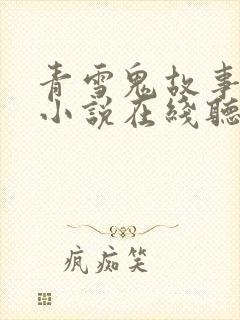 青雪鬼故事
小説在綫聽
疯痴笑